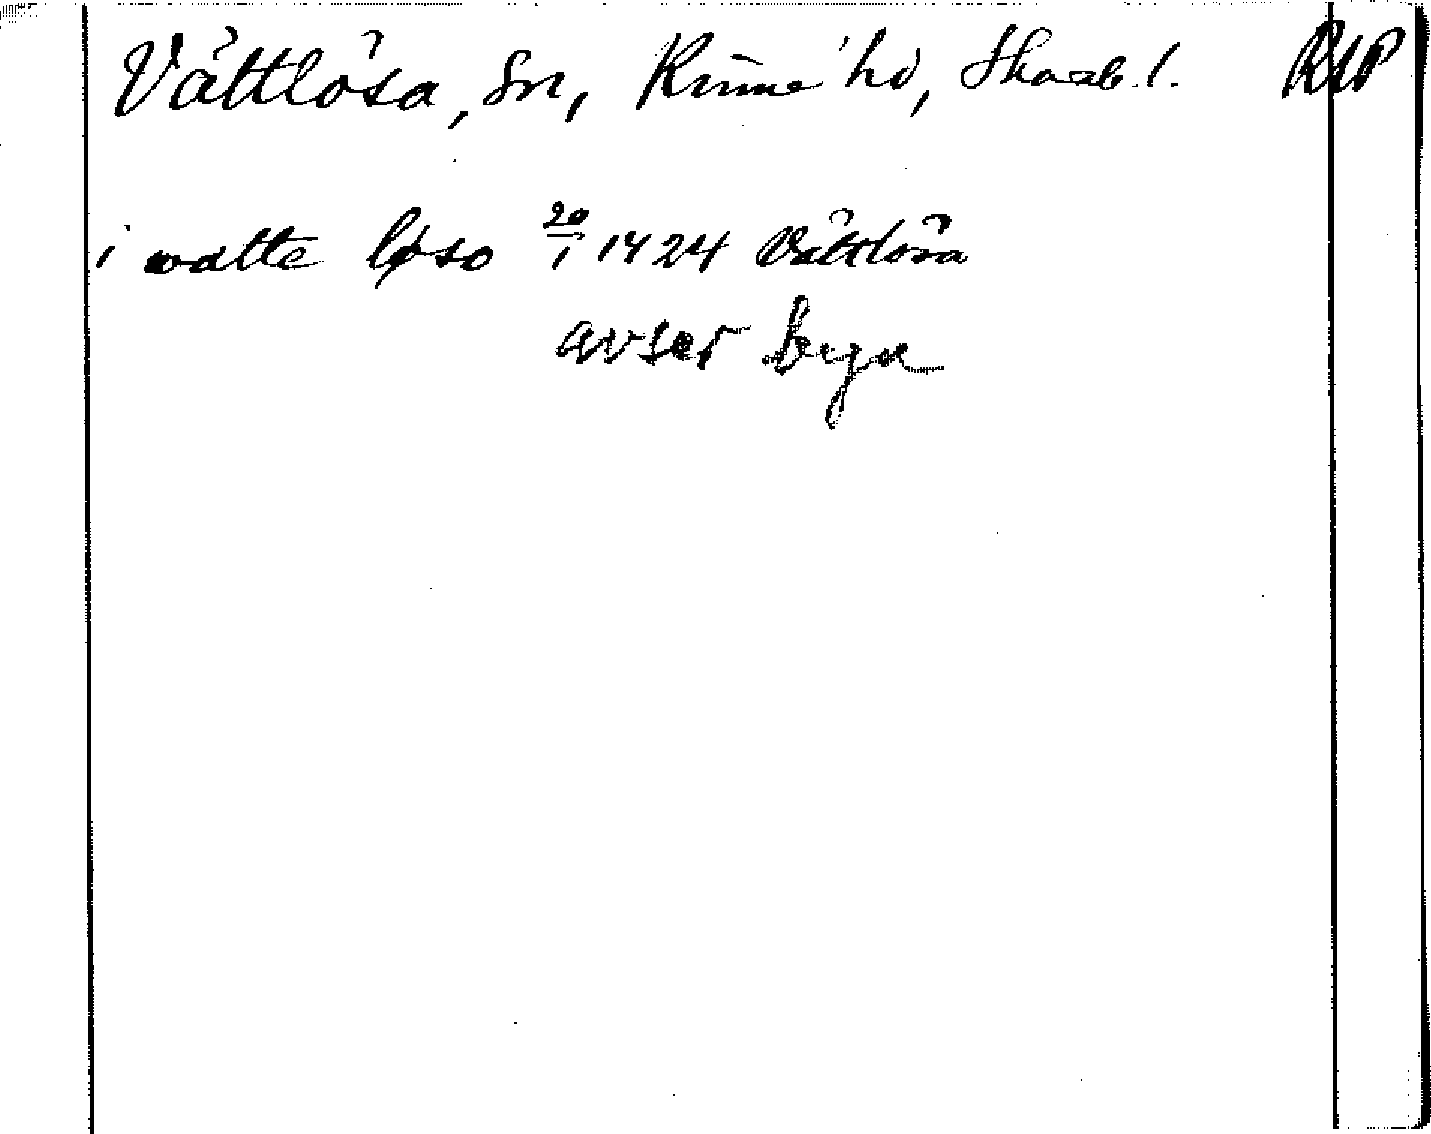 Vättlösa, Sn, Kinne hd, Skarab. l. RAP
i watte løso 20/1 1424 Vättlösa
avser byn